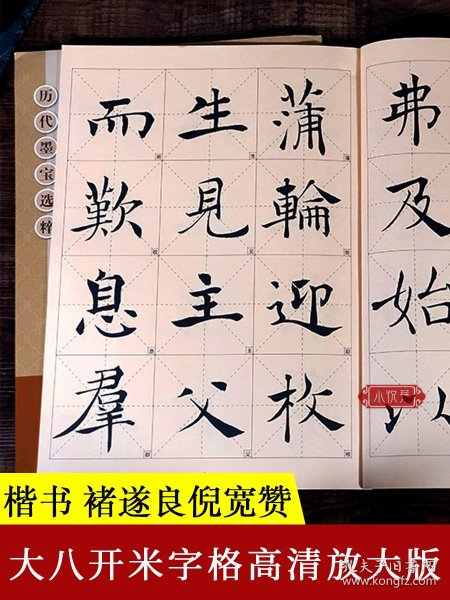 历代墨宝选粹
弗及始以
蒲輪迎枚
生見主父
而歎息羣
楷书 褚遂良倪宽赞
大八开米字格高清放大版
孔夫子旧书网
kongfz.com